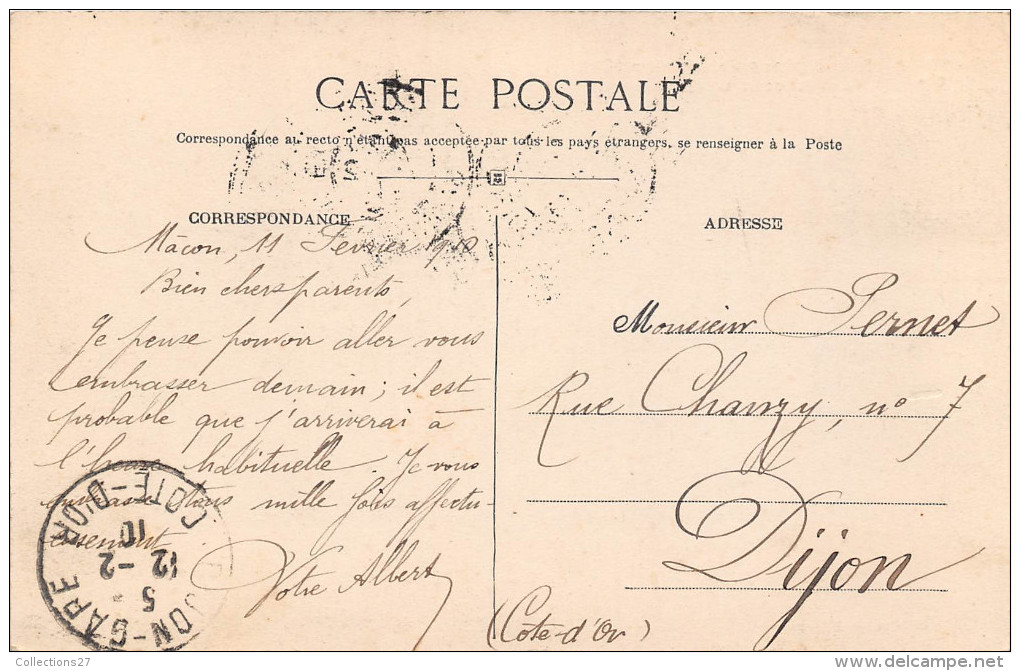 CARTE POSTALE
Correspondance au recto n'étant pas acceptée par tous les pays étrangers, se renseigner à la Poste
CORRESPONDANCE
Mâcon, 11 Février 1910
Bien chers parents,
Je pense pouvoir aller vous
embrasser demain ; il est
probable que j'arriverai à
l'heure habituelle. Je vous
embrasse tous mille fois affectu-
eusement.
Votre Albert
ADRESSE
Monsieur Pernet
Rue Chanzy, n° 7
Dijon
(Côte-d'Or)
DIJON-GARE
CÔTE-D'OR
5
12-2
10
Collections27
www.delcampe.net